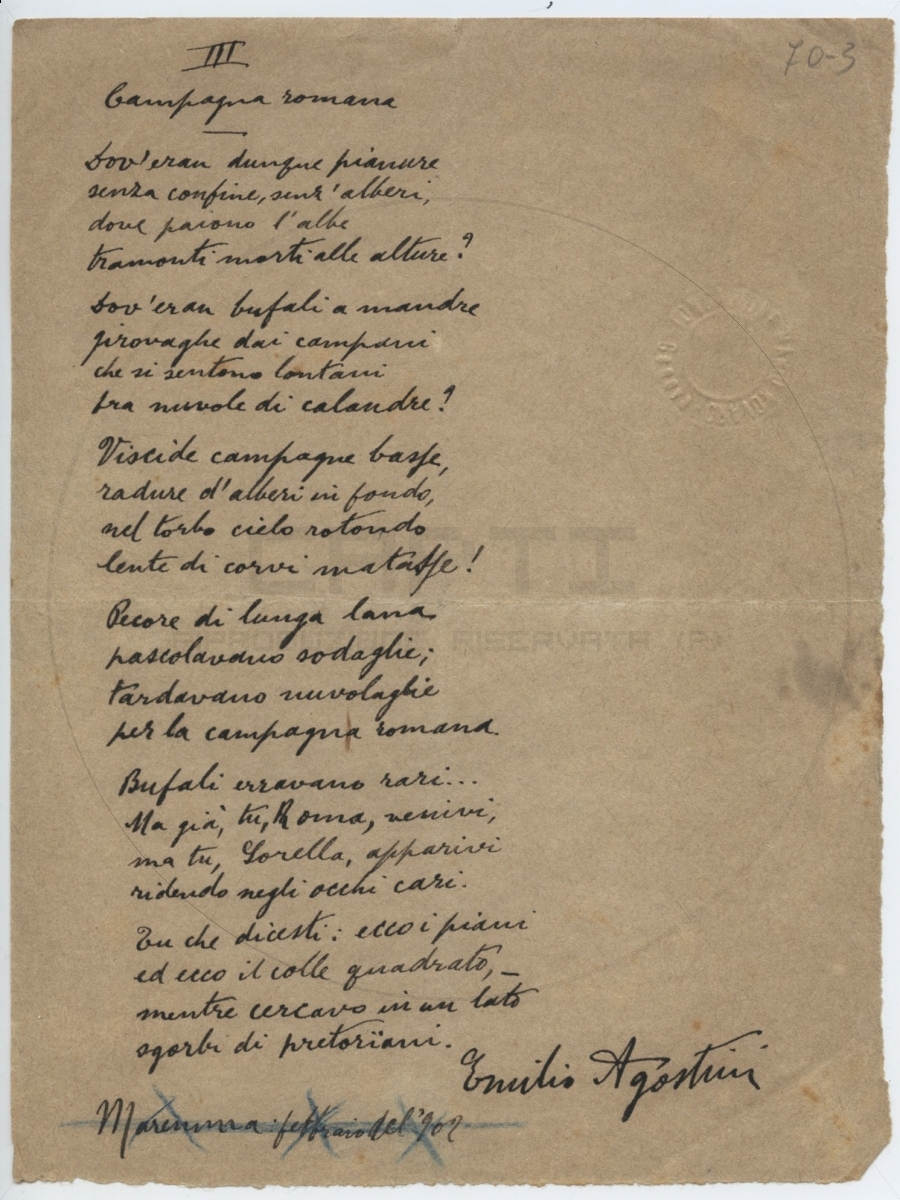 III
70-3
Campagna romana
Dov'eran dunque pianure
senza confine, senz'alberi,
dove paiono l'albe
tramonti morti alle alture?
Dov'eran bufali a mandre
girovaghe dai campani
che si sentono lontani
fra nuvole di calandre?
Viscide campagne basse,
radure d'alberi in fondo,
nel torbo cielo rotondo
lente di corvi matasse!
Pecore di lunga lana
pascolavano sodaglie;
tardavano nuvolaglie
per la campagna romana.
Bufali erravano rari...
Ma già, tu, Roma, venivi,
ma tu, Sorella, apparivi
ridendo negli occhi cari.
Tu che dicesti: ecco i piani
ed ecco il colle quadrato, –
mentre cercavo in un lato
sgorbi di pretorïani.
Emilio Agostini
Maremma: febbraio del '902